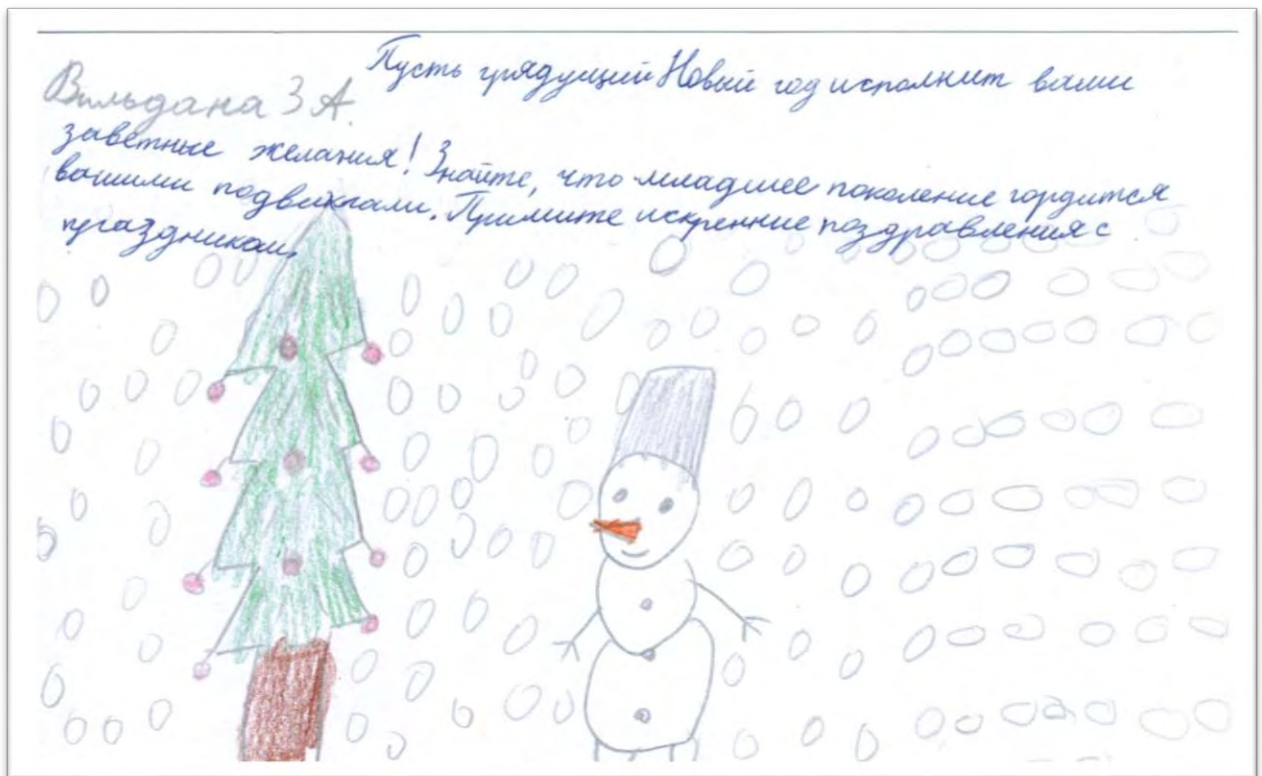 Пусть грядущий Новый год исполнит ваши
Вильдана 3 А.
заветные желания! Знайте, что младшее поколение гордится
вашими подвигами. Примите искренние поздравления с
праздником.